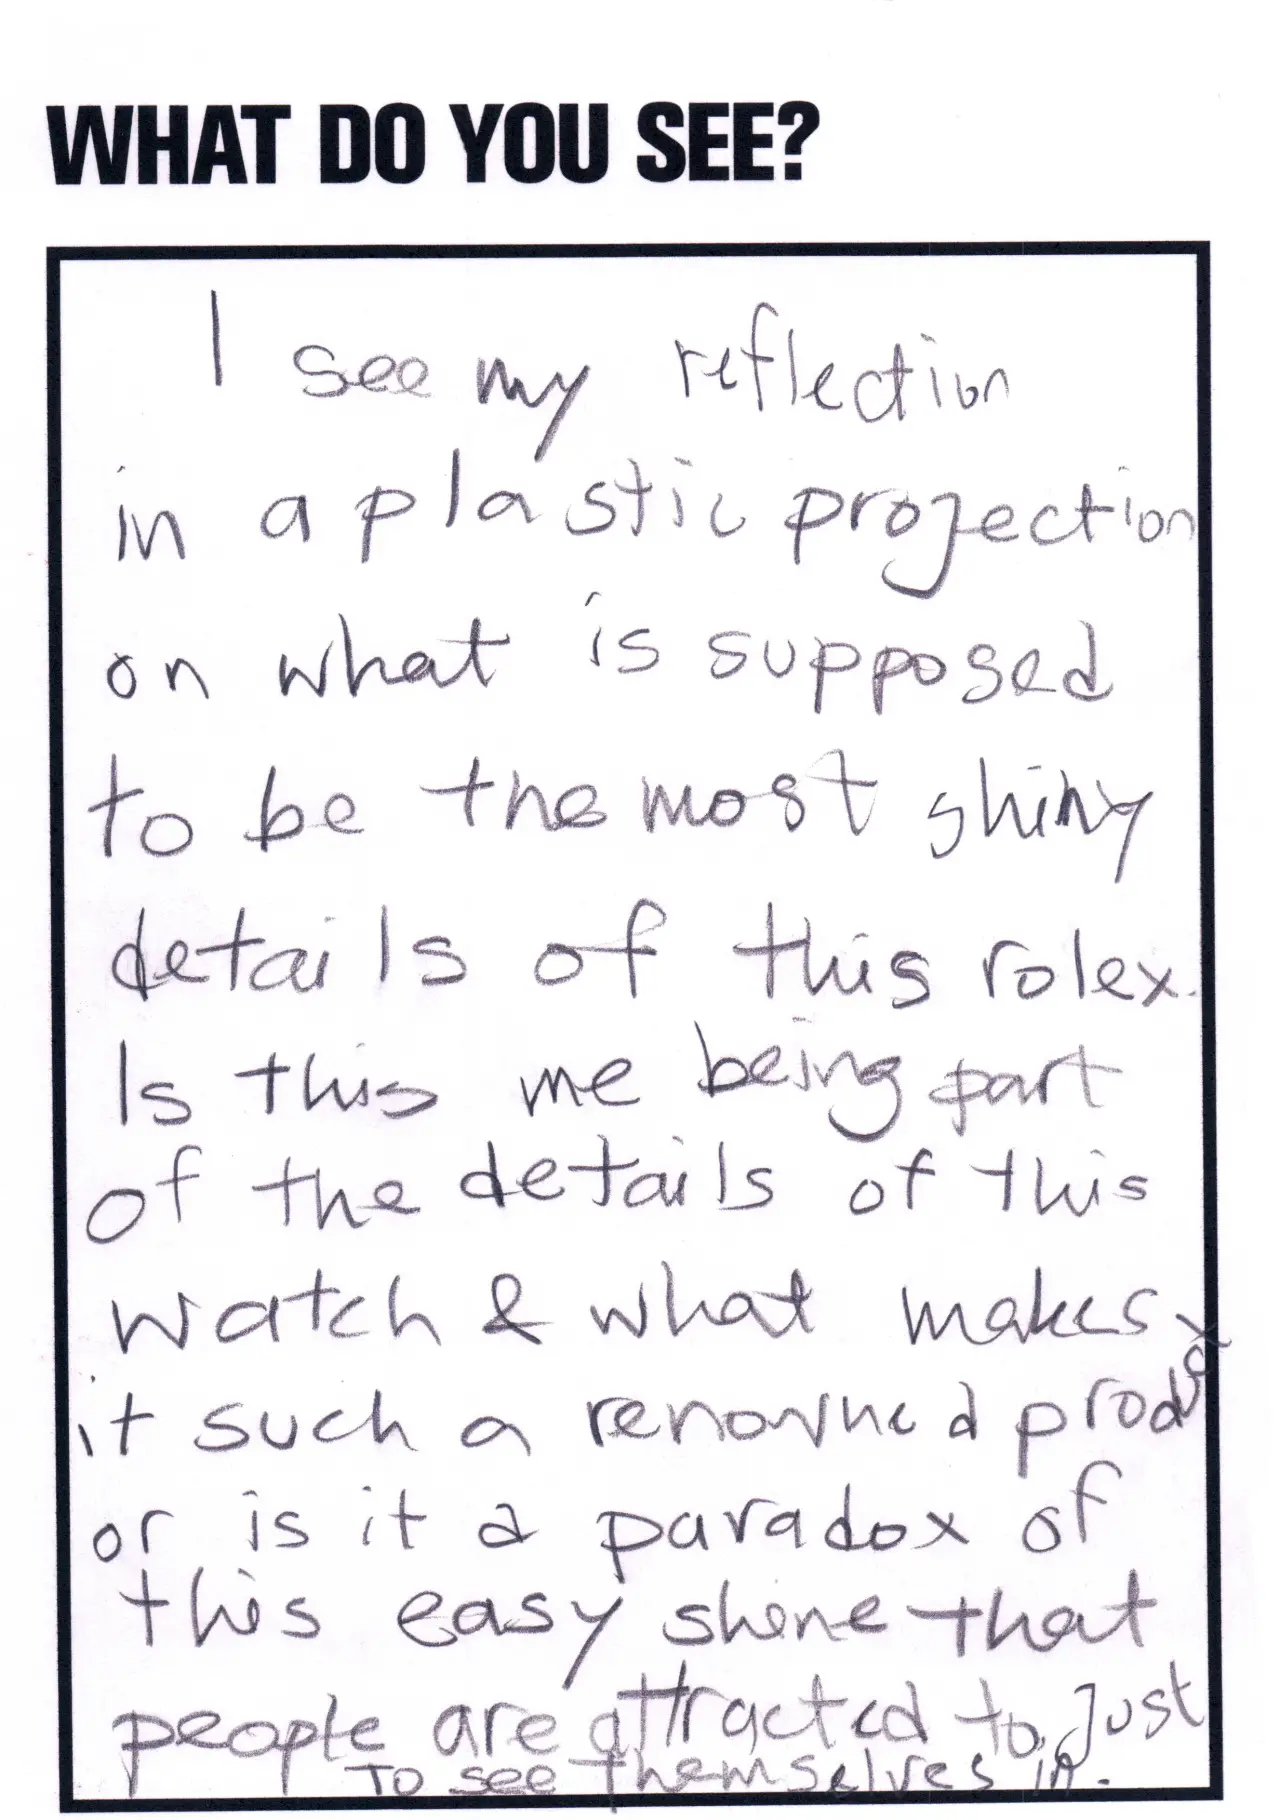 WHAT DO YOU SEE?
I see my reflection
in a plastic projection
on what is supposed
to be the most shiny
details of this rolex.
Is this me being part
of the details of this
watch & what makes
it such a renowned product
or is it a paradox of
this easy shine that
people are attracted to just
to see themselves in.